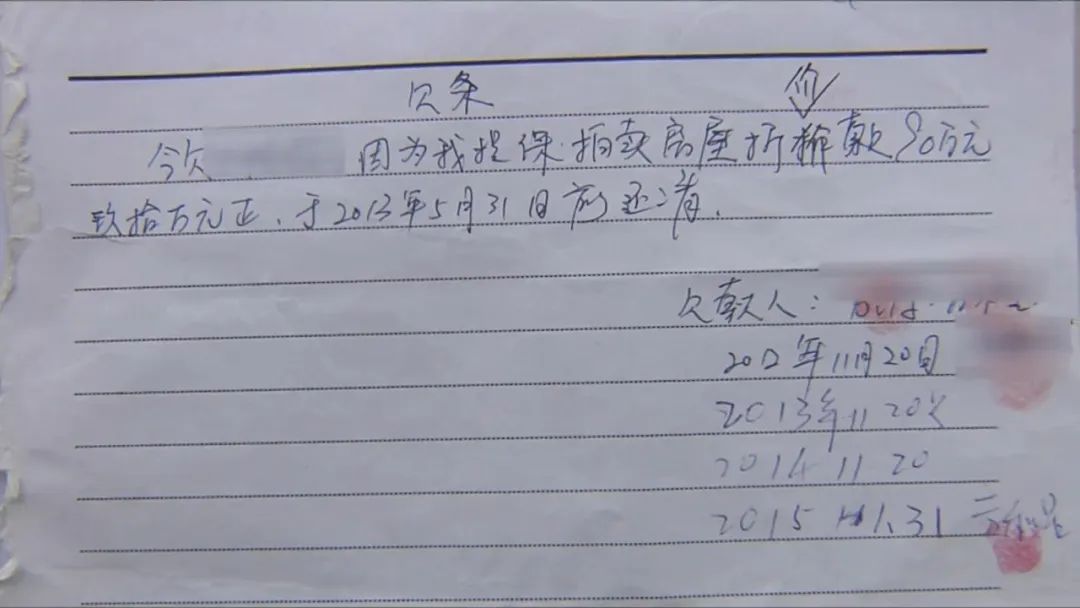 欠条
价
今欠 因为我担保拍卖房屋折称款90万元
玖拾万元正、于2013年5月31日前还清.
欠款人:
2012年11月20日
2013年11 20
2014 11 20
2015 31